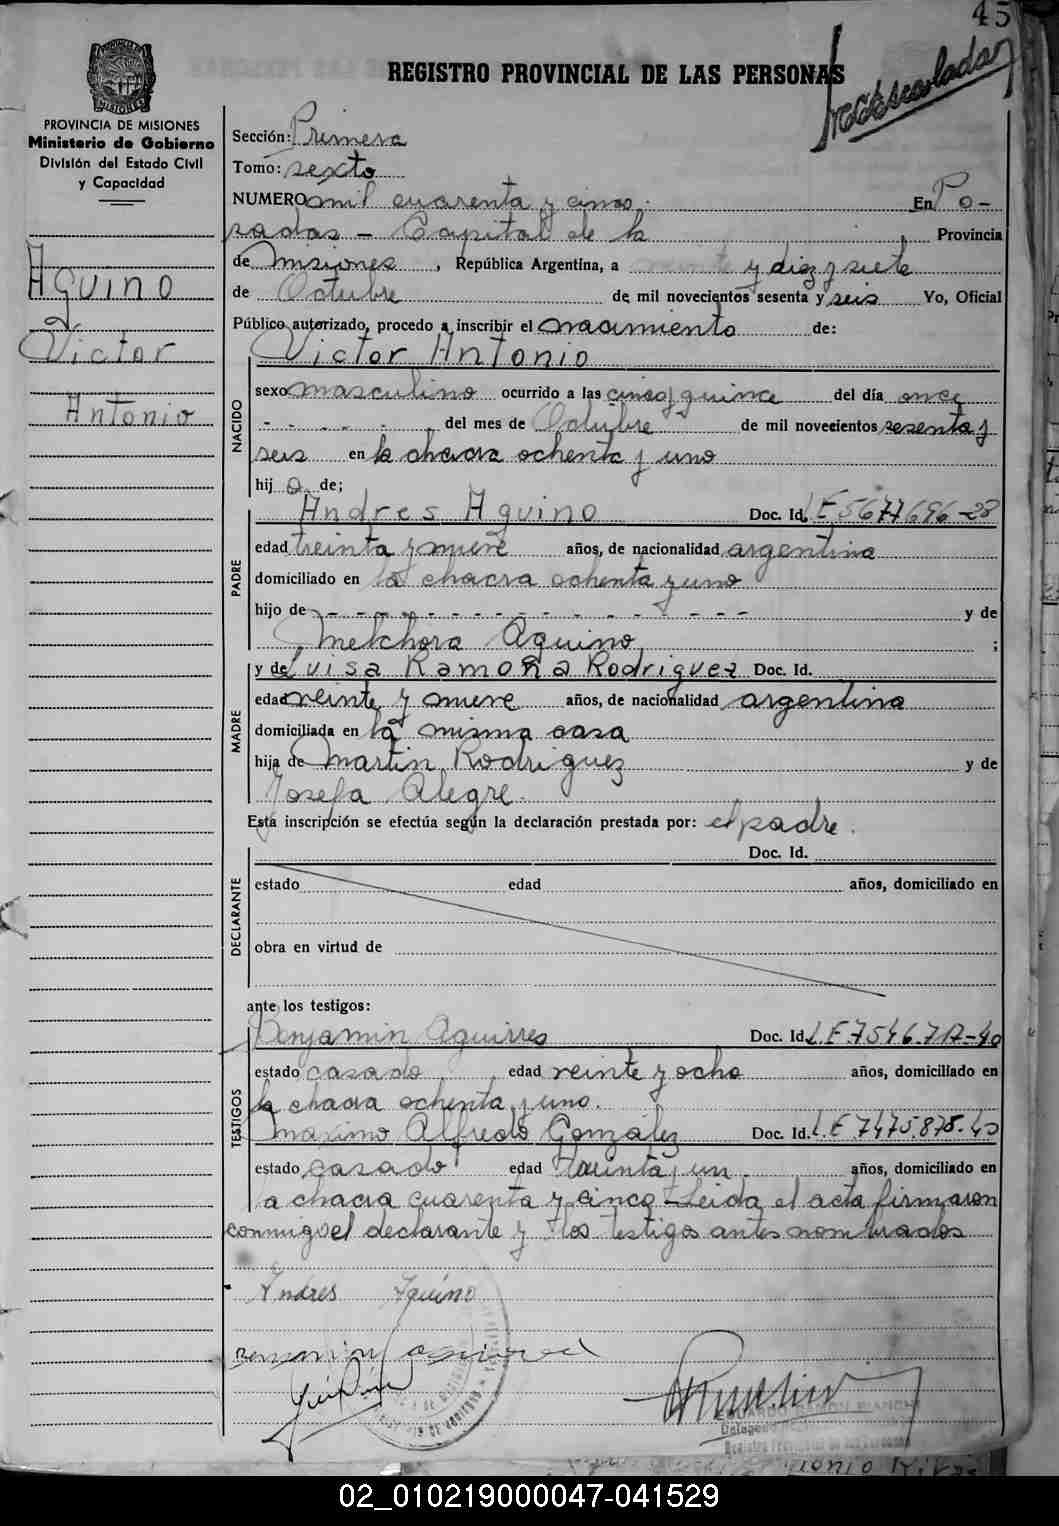 45
REGISTRO PROVINCIAL DE LAS PERSONAS
PROVINCIA DE MISIONES
Ministerio de Gobierno
División del Estado Civil
y Capacidad
Aquino
Victor
Antonio
Sección: Primera
Tomo: sexto
NUMERO mil cuarenta y cinco. En Po-
sadas - Capital de la Provincia
de Misiones, República Argentina, a y diez y siete
de Octubre de mil novecientos sesenta y seis Yo, Oficial
Público autorizado, procedo a inscribir el nacimiento de:
Victor Antonio
NACIDO
sexo masculino ocurrido a las cinco y quince del día once
del mes de Octubre de mil novecientos sesenta y
seis en la chacra ochenta y uno
hijo de;
PADRE
Andres Aquino Doc. Id. L E 5677696-28
edad treinta y nueve años, de nacionalidad argentina
domiciliado en la chacra ochenta y uno
hijo de - - - - - - - - - - - - - - y de
Melchora Aquino ;
MADRE
y de Luisa Ramona Rodriguez Doc. Id.
edad veinte y nueve años, de nacionalidad argentina
domiciliada en la misma casa
hija de Martin Rodriguez y de
Josefa Alegre.
Esta inscripción se efectúa según la declaración prestada por: el padre.
DECLARANTE
Doc. Id.
estado edad años, domiciliado en
obra en virtud de
ante los testigos:
TESTIGOS
Benjamin Aguirres Doc. Id. L.E.
estado casado edad veinte y ocho años, domiciliado en
la chacra ochenta y uno.
Maximo Alfredo Gonzalez Doc. Id. L.E 7475.878-40
estado casado edad treinta y un años, domiciliado en
la chacra cuarenta y cinco - Leida el acta firmaron
conmigo el declarante y los testigos antes nombrados
Andres Aquino
02_010219000047-041529